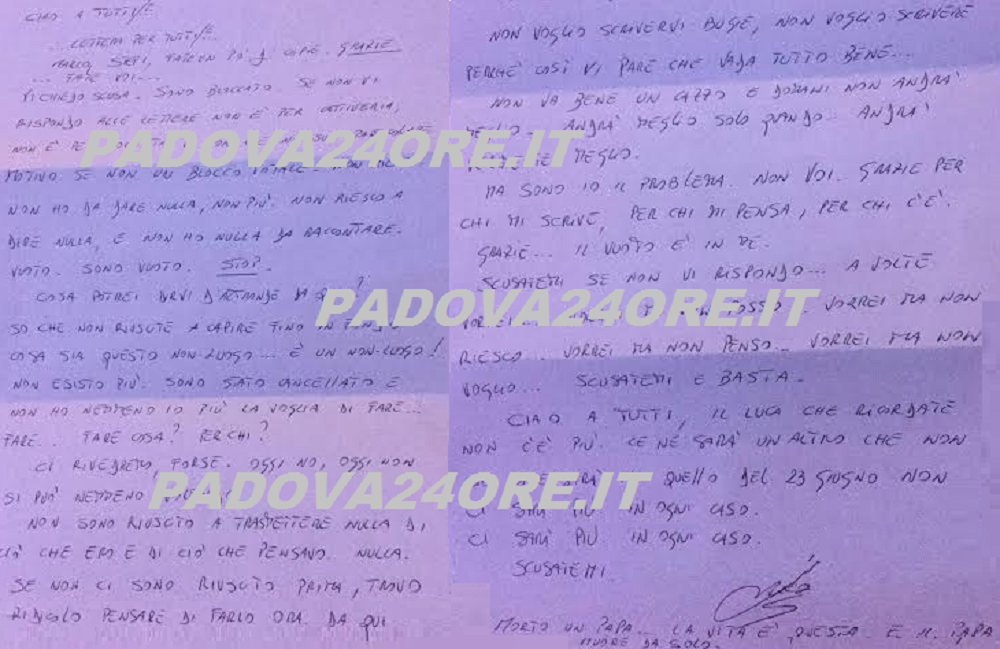 CIAO A TUTTI/E
... LETTERA PER TUTTI/E
FATE VOI...
VI CHIEDO SCUSA. SONO BLOCCATO. SE NON VI
RISPONDO ALLE LETTERE NON È PER CATTIVERIA,
NON È PER
PADOVA24ORE.IT
MOTIVO SE NON UN BLOCCO TOTALE.
NON HO DA DARE NULLA, NON PIÙ. NON RIESCO A
DIRE NULLA, E NON HO NULLA DA RACCONTARE.
VUOTO. SONO VUOTO. STOP.
COSA POTREI DIRVI D'ALTRONDE DA QUI?
SO CHE NON RIUSCITE A CAPIRE FINO IN FONDO
COSA SIA QUESTO NON-LUOGO... È UN NON-LUOGO!
NON ESISTO PIÙ. SONO STATO CANCELLATO E
NON HO NEMMENO IO PIÙ LA VOGLIA DI FARE...
FARE... FARE COSA? PER CHI?
CI RIVEDREMO, FORSE. OGGI NO, OGGI NON
SI PUÒ NEMMENO
PADOVA24ORE.IT
NON SONO RIUSCITO A TRASMETTERE NULLA DI
CIÒ CHE ERO E DI CIÒ CHE PENSAVO. NULLA.
SE NON CI SONO RIUSCITO PRIMA, TROVO
RIDICOLO PENSARE DI FARLO ORA. DA QUI
NON VOGLIO SCRIVERVI BUGIE, NON VOGLIO SCRIVERE
PERCHÈ COSÌ VI PARE CHE VADA TUTTO BENE...
NON VA BENE UN CAZZO E DOMANI NON ANDRA'
MEGLIO... ANDRA' MEGLIO SOLO QUANDO... ANDRA'
MEGLIO.
MA SONO IO IL PROBLEMA. NON VOI. GRAZIE PER
CHI MI SCRIVE, PER CHI MI PENSA, PER CHI C'È.
GRAZIE... IL VUOTO E' IN ME.
SCUSATEMI SE NON VI RISPONDO... A VOLTE
VORREI... NON POSSO... VORREI MA NON
PADOVA24ORE.IT
RIESCO. VORREI MA NON PENSO... VORREI MA NON
VOGLIO... SCUSATEMI E BASTA.
CIAO A TUTTI, IL LUCA CHE RICORDATE
NON C'È PIÙ. CE NE SARÀ UN ALTRO CHE NON
QUELLO DEL 23 GIUGNO NON
CI SARÀ PIÙ IN OGNI CASO.
CI SARÀ PIÙ IN OGNI CASO.
SCUSATEMI.
MORTO UN PAPA... LA VITA E' QUESTA E IL PAPA
MUORE DA SOLO.